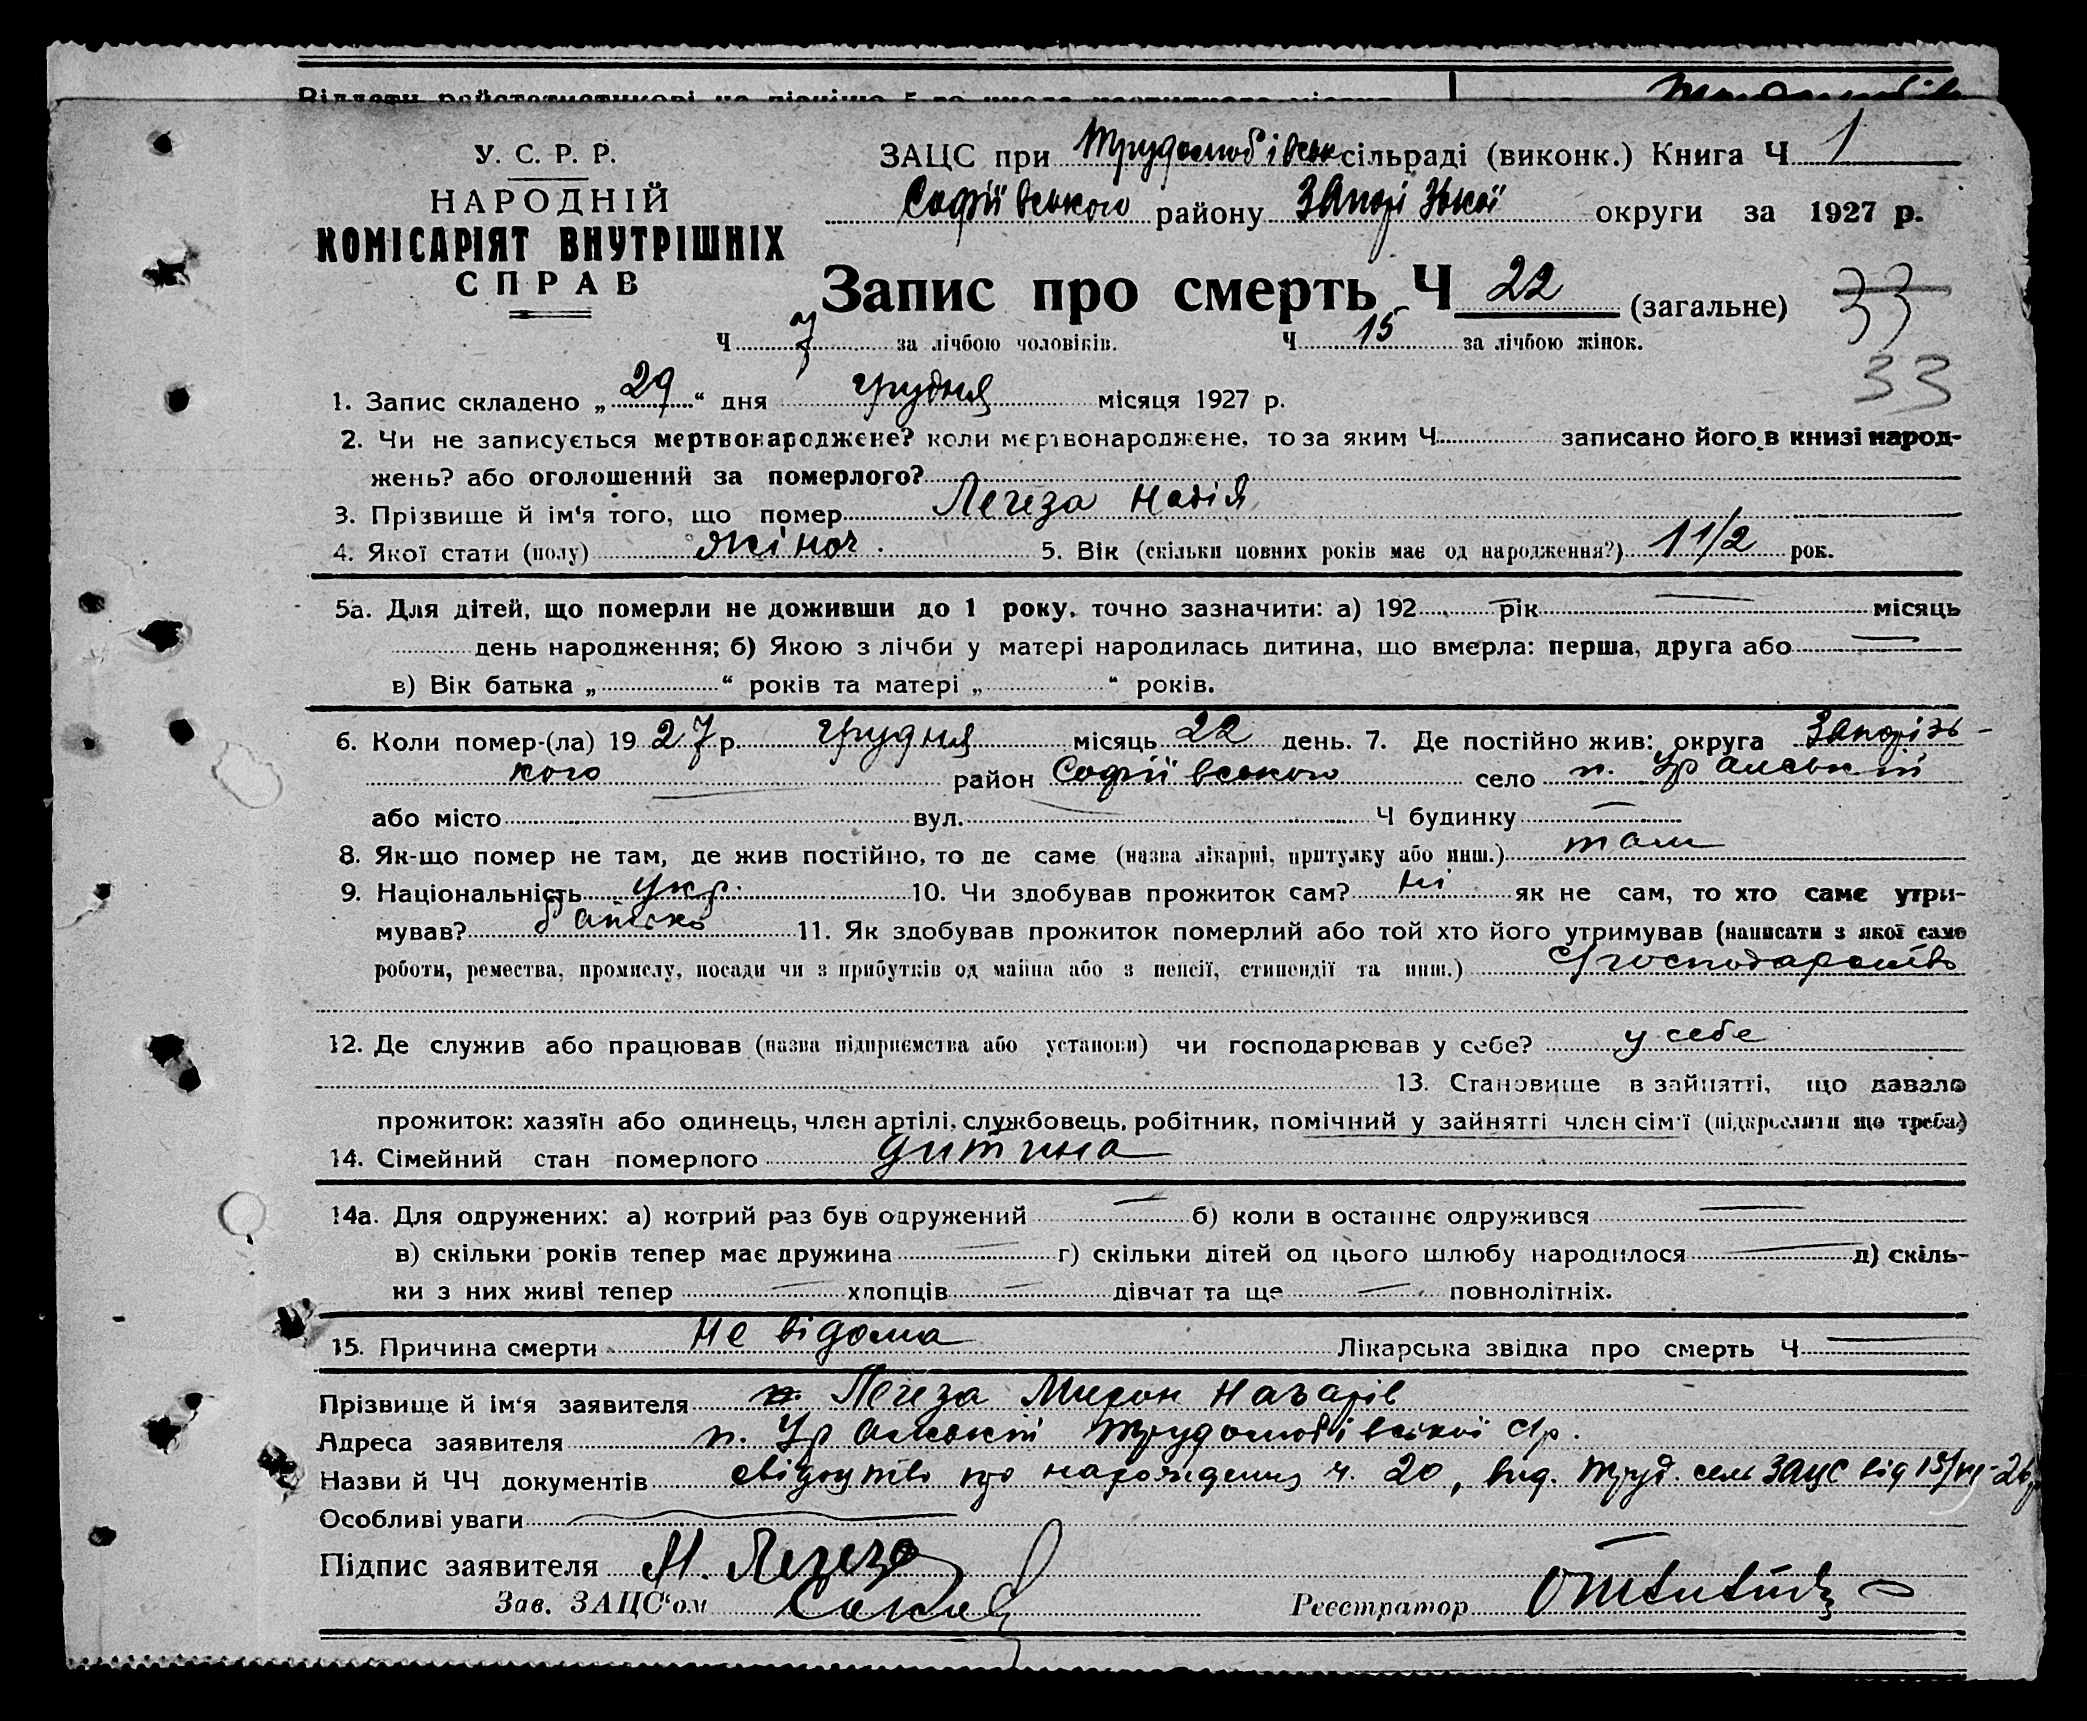 У. С. Р. Р.
НАРОДНІЙ
КОМІСАРІЯТ ВНУТРІШНІХ
СПРАВ
ЗАЦС при Трудолюбівськ сільраді (виконк.) Книга Ч 1
Софіївського району Запорізької округи за 1927 р.
Запис про смерть Ч 22 (загальне) 33
Ч 7 за лічбою чоловіків. Ч 15 за лічбою жінок.
33
1. Запис складено „ 29 “ дня грудня місяця 1927 р.
2. Чи не записується мертвонароджене? коли мертвонароджене, то за яким Ч записано його в книзі народ-
жень? або оголошений за померлого?
3. Прізвище й ім‘я того, що помер Легеза Надія
4. Якої стати (полу) жіноч. 5. Вік (скільки повних років має од народження?) 1 1/2 рок.
5а. Для дітей, що померли не доживши до 1 року, точно зазначити: а) 192 рік — місяць
день народження; б) Якою з лічби у матері народилась дитина, що вмерла: перша, друга або —
в) Вік батька „ “ років та матері „ “ років.
6. Коли помер-(ла) 19 27 р. грудня місяць 22 день. 7. Де постійно жив: округа Запорізь-
кого район Софіївського село п.
або місто — вул. — Ч будинку —
8. Як-що помер не там, де жив постійно, то де саме (назва лікарні, притулку або инш.) там
9. Національність укр. 10. Чи здобував прожиток сам? ні як не сам, то хто саме утри-
мував? батько 11. Як здобував прожиток померлий або той хто його утримував (написати з якої само
роботи, ремества, промислу, посади чи з прибутків од майна або з пенсії, стипендії та инш.) с/господарство
12. Де служив або працював (назва підприємства або установи) чи господарював у себе? у себе
13. Становище в зайнятті, що давало
прожиток: хазяїн або одинець, член артілі, службовець, робітник, помічний у зайнятті член сім‘ї (підкреслити що треба)
14. Сімейний стан померлого дитина
14а. Для одружених: а) котрий раз був одружений — б) коли в останнє одружився —
в) скільки років тепер має дружина — г) скільки дітей од цього шлюбу народилося — д) скіль-
ки з них живі тепер — хлопців — дівчат та ще — повнолітніх.
15. Причина смерти не відома Лікарська звідка про смерть Ч —
Прізвище й ім‘я заявителя Легеза Мирон Назарів
Адреса заявителя п. Трудолюбівської с/р.
Назви й ЧЧ документів свідоцтво про народження ч. 20, вид. Труд. сель ЗАЦС від
Особливі уваги —
Підпис заявителя М. Легеза
Зав. ЗАЦС‘ом
Реєстратор